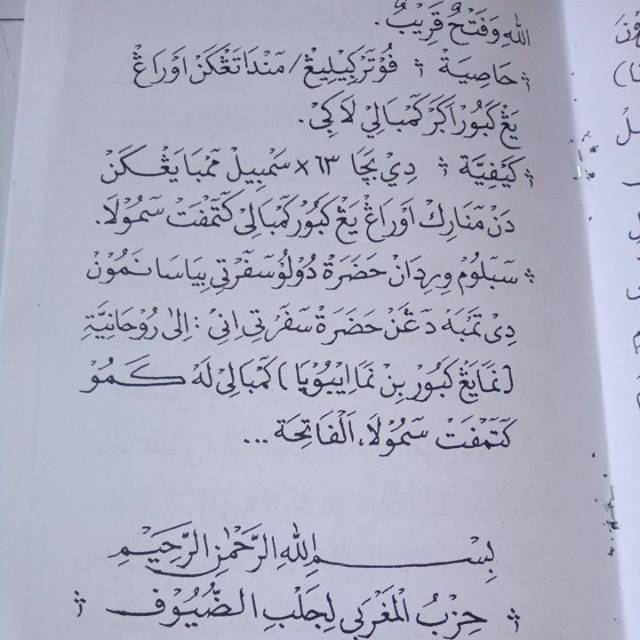 اللّٰهِ وَفَتْحٌ قَرِيْبٌ.
؛ حَاصِيَة ؛ فُوْتَرْ كِيْلِيْڠْ / مَنْدَاتَڠْكَنْ اَوْرَاڠْ
يَڠْ كَبُوْرْ اَكَرْ كَمْبَالِيْ لَاكِيْ.
؛ كَيْفِيَّة ؛ دِيْ بَچَا ٦٣ x سَمْبِيْلْ مَمْبَايَڠْكَنْ
دَنْ مَنَارِكْ اَوْرَاڠْ يَڠْ كَبُوْرْ كَمْبَالِيْ كَتَمْفَتْ سَمُوْلَا.
؛ سَبَلُوْمْ وِيرِدَانْ حَضَرَةْ دُوْلُوْ سَفَرْتِيْ بِيَاسَا نَمُوْنْ
دِيْ تَمْبَهْ دَڠَنْ حَضَرَةْ سَفَرْتِيْ اِنِيْ : اِلٰى رُوْحَانِيَّةِ
(نَمَا يَڠْ كَبُوْرْ بِنْ نَمَا اِيْبُوْيَا) كَمْبَالِيْ لَهْ كَمُوْ
كَتَمْفَتْ سَمُوْلَا، اَلْفَاتِحَة ...
بِسْمِ اللّٰهِ الرَّحْمٰنِ الرَّحِيْمِ
؛ حِزْبُ الْمَغْرَبِي لِجَلْبِ الضُّيُوْفِ ؛